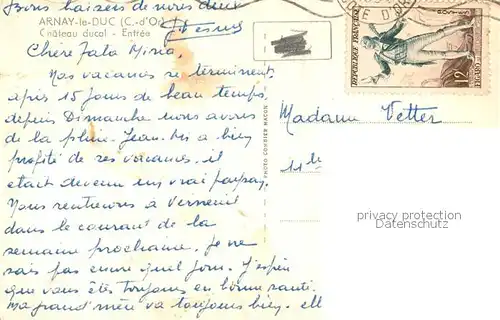 Bons baisers de nous deux
ARNAY-le-DUC (C.-d'Or)
Château ducal - Entrée
Chère Tata Miria,
Nos vacances se terminent
après 15 jours de beau temps,
depuis Dimanche nous avons
de la pluie. Jean-Mi a bien
profité de ses vacances, il
était devenu un vrai paysan.
Nous rentrerons à Verneuil
dans le courant de la
semaine prochaine, je ne
sais pas encore quel jour. J'espère
que vous êtes toujours en bonne santé.
Ma grand'mère va toujours bien, elle
PHOTO COMBIER MACON
REPUBLIQUE FRANÇAISE
POSTES
12F
FIGARO
COTE D'OR
Madame Vetter
privacy protection
Datenschutz